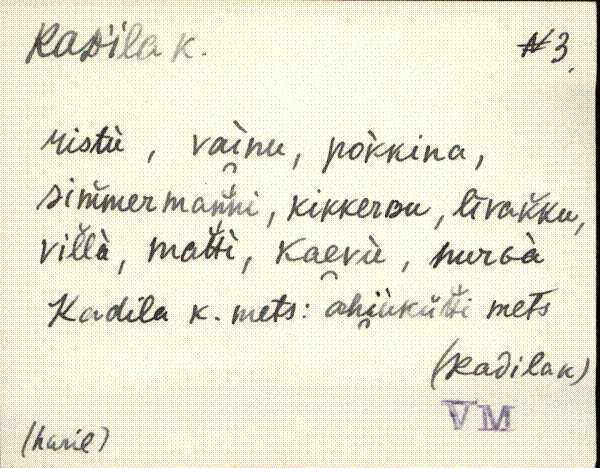 Kadila k. N3.
ristù, vaìnu, pòkkina,
sim̆mermanni, kikkerou, līvak̆ku,
villà, mattì, kaevù, nurgà
Kadila k. mets: ahiukütti mets
(Kadila k)
VM
(haril)